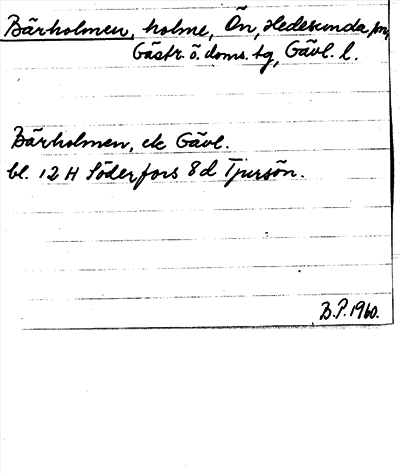 Bärholmen, holme, Ön, Hedesunda sn,
Gästr. ö. doms. tg, Gävl. l.
Bärholmen, ek Gävl.
bl. 12 H Söderfors 8d Tjursön.
B.P. 1960.